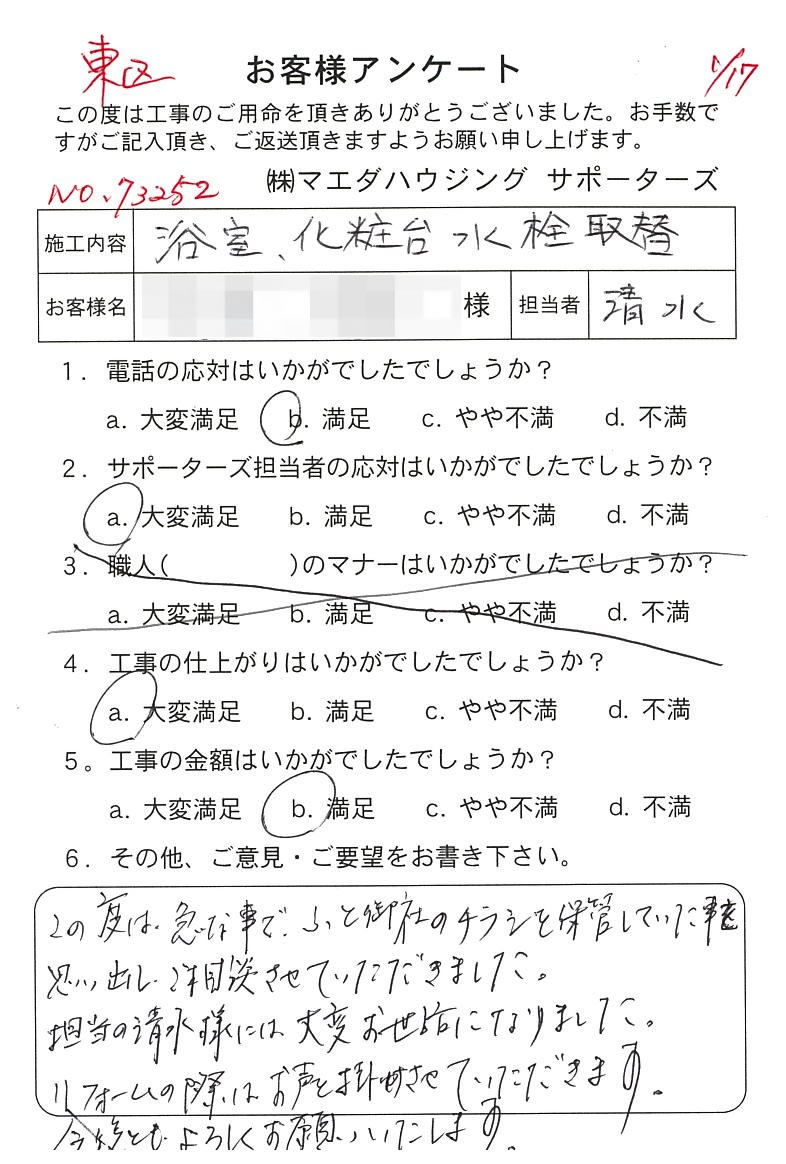 東区
お客様アンケート
1/17
この度は工事のご用命を頂きありがとうございました。お手数で
すがご記入頂き、ご返送頂きますようお願い申し上げます。
NO.73252
㈱マエダハウジング サポーターズ
施工内容 浴室、化粧台水栓取替
お客様名 様 担当者 清水
1. 電話の応対はいかがでしたでしょうか?
a. 大変満足 b. 満足 c. やや不満 d. 不満
2. サポーターズ担当者の応対はいかがでしたでしょうか?
a. 大変満足 b. 満足 c. やや不満 d. 不満
3. 職人( )のマナーはいかがでしたでしょうか?
a. 大変満足 b. 満足 c. やや不満 d. 不満
4. 工事の仕上がりはいかがでしたでしょうか?
a. 大変満足 b. 満足 c. やや不満 d. 不満
5。工事の金額はいかがでしたでしょうか?
a. 大変満足 b. 満足 c. やや不満 d. 不満
6. その他、ご意見・ご要望をお書き下さい。
この度は、急な事で、ふと御社のチラシを保管していた事を
思い出し、ご相談させていただきました。
担当の清水様には大変お世話になりました。
リフォームの際はお声を掛けさせていただきます。
今後ともよろしくお願いいたします。